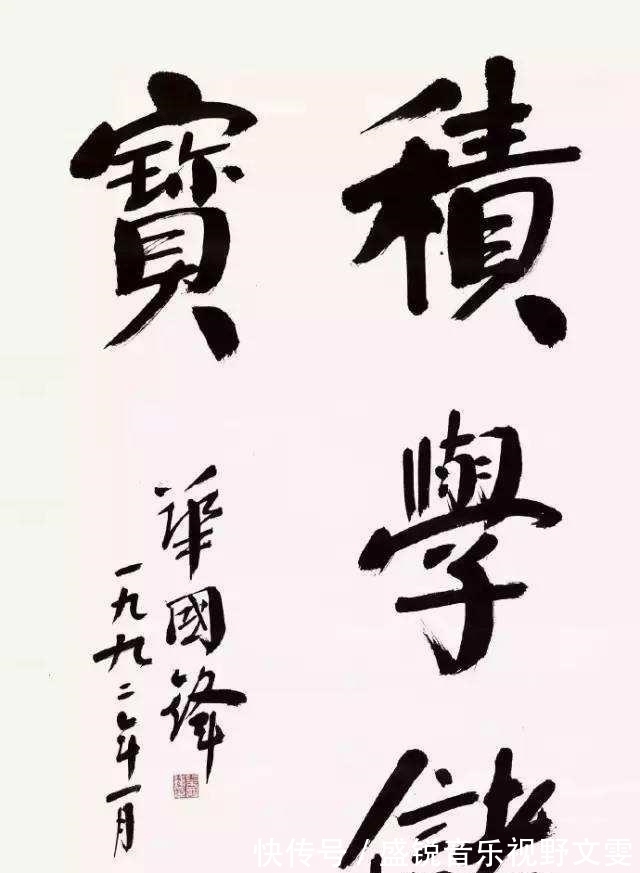 積學儲
寶
華國鋒
一九九二年一月
快传号/盛锐音乐视野文雯